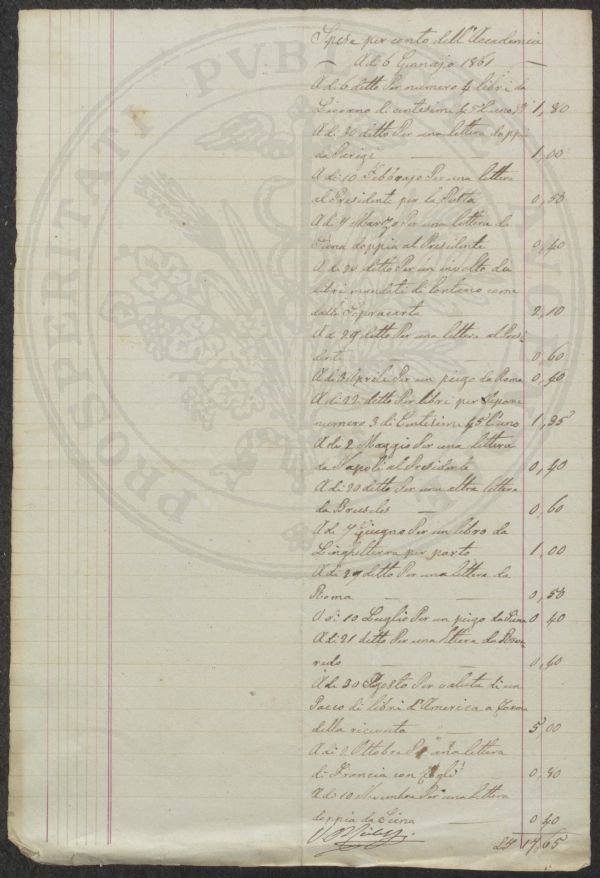 Spese per conto dell'Accademia
A di 6 Gennajo 1861
A di 6 ditto Per numero 4 libri da
Livorno di centesimi 45 l'uno 1,80
A di 20 ditto Per una lettera doppia
da Parigi 1,00
A di 10 Febbrajo Per una lettera
al Presidente per la Posta 0,50
A di 4 Marzo Per una lettera da
Siena doppia al Presidente 0,40
A di 20 ditto Per un involto di
libri mandati di come
dalla Sopracarta 2,10
A di 29 ditto Per una lettera al Presi-
dente 0,60
A di 3 Aprile Per un piego da Roma 0,40
A di 22 ditto Per libri per
numero 3 di Centesimi 45 l'uno 1,35
A di 2 Maggio Per una lettera
da Napoli al Presidente 0,40
A di 20 ditto Per una altra lettera
da Bruseles 0,60
A di 7 Giugno Per un libro da
Linghilterra per porto 1,00
A di 29 ditto Per una lettera da
Roma 0,50
A di 10 Luglio Per un piego da Siena 0,40
A di 21 ditto Per una lettera da
0,40
A di 30 Agosto Per valuta di un
Pacco di libri d'America a forma
della ricevuta 5,00
A di 2 Ottobre Per una lettera
di Francia con fogli 0,80
A di 10 Novembre Per una lettera
doppia da Siena 0,40
17,65
PROSPERITATI PVBLICAE AVGENDAE